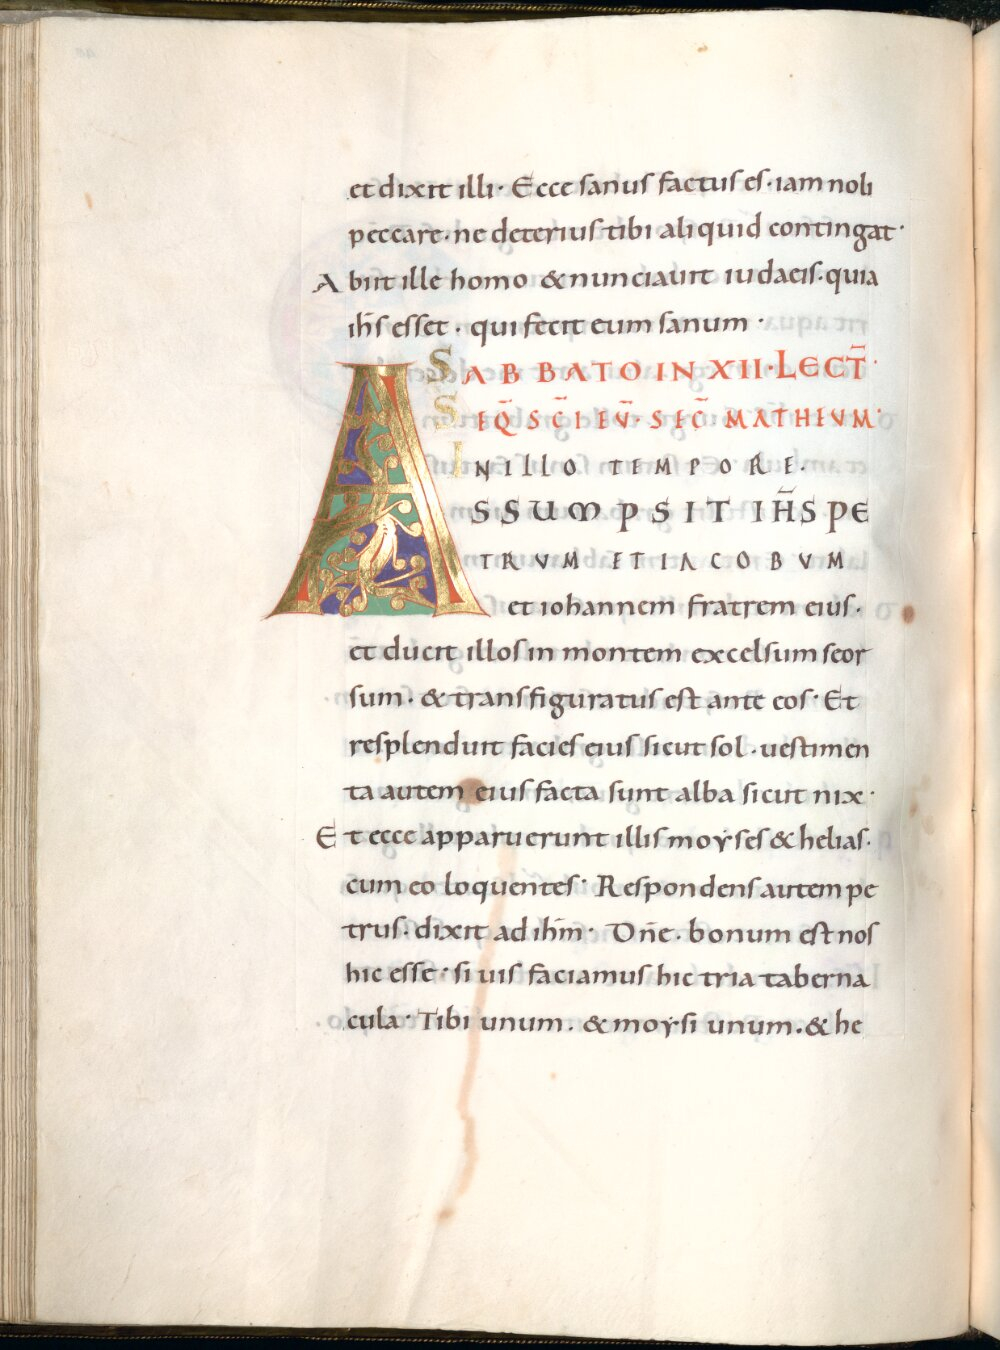 et dixit illi · Ecce sanus factus es · iam noli
peccare · ne deterius tibi aliquid contingat ·
Abiit ille homo & nunciauit iudaeis · quia
ih̄s esset · qui fecit eum sanum ·
SABBATO IN XII · LECT̄ ·
SEQ̄ SC̄I EV̄ · SEC̄ MATHEVM ·
IN ILLO TEMPORE ·
ASSUMPSIT IH̄S PE
TRVM ET IACOBVM
et iohannem fratrem eius ·
et ducit illos in montem excelsum seor
sum · & transfiguratus est ante eos · Et
resplenduit facies eius sicut sol · uestimen
ta autem eius facta sunt alba sicut nix ·
Et ecce apparuerunt illis moyses & helias ·
cum eo loquentes · Respondens autem pe
trus · dixit ad ih̄m · Dn̄e · bonum est nos
hic esse · si uis faciamus hic tria taberna
cula · Tibi unum · & moysi unum · & he